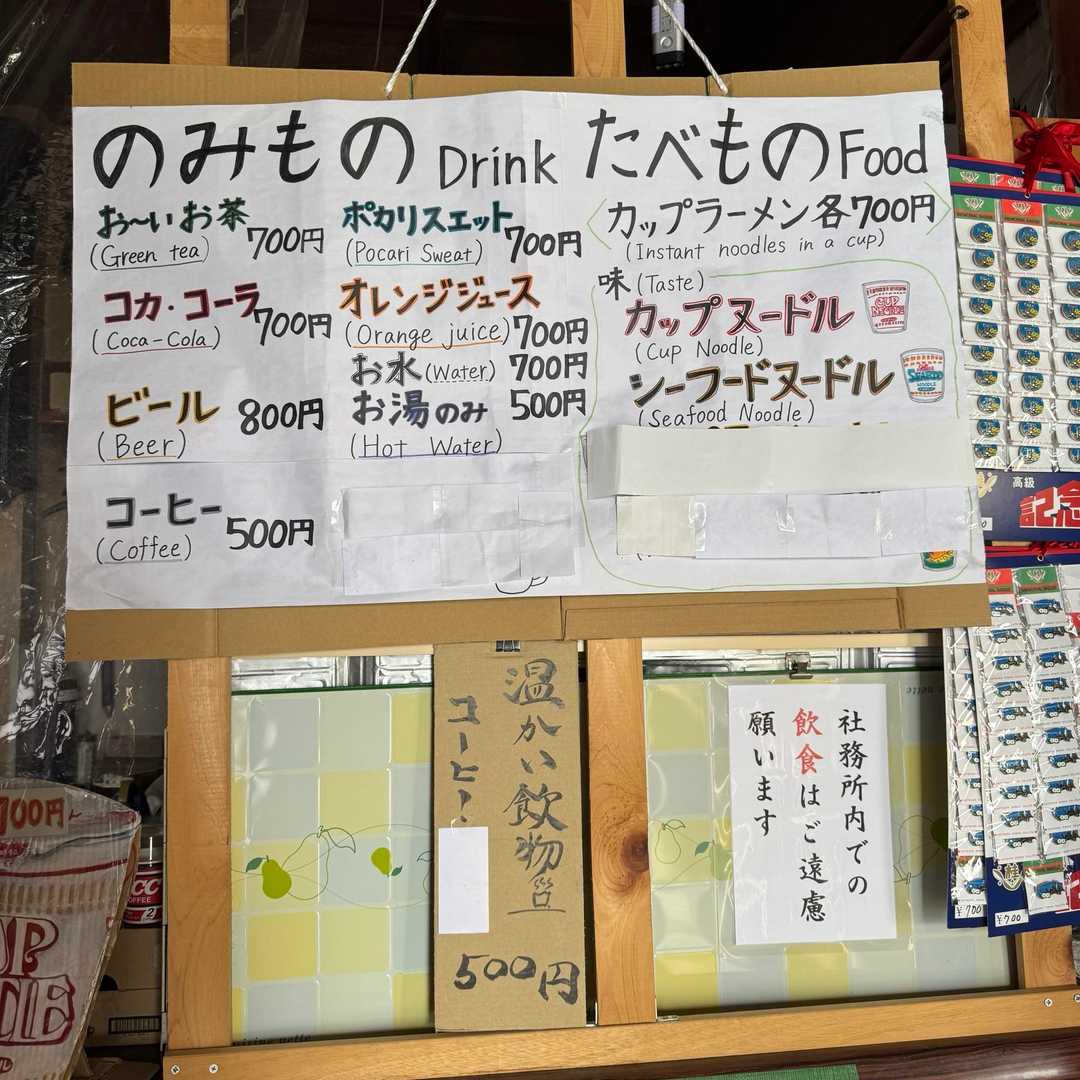 のみもの Drink
お〜いお茶 700円
(Green tea)
コカ・コーラ 700円
(Coca-Cola)
ビール 800円
(Beer)
コーヒー 500円
(Coffee)
ポカリスエット 700円
(Pocari Sweat)
オレンジジュース
(Orange juice) 700円
お水(Water) 700円
お湯のみ 500円
(Hot Water)
たべもの Food
カップラーメン各700円
(Instant noodles in a cup)
味(Taste)
カップヌードル
(Cup Noodle)
シーフードヌードル
(Seafood Noodle)
温かい飲物
コーヒー
500円
社務所内での
飲食はご遠慮
願います
高級
記念
¥700
¥700
700円
COFFEE